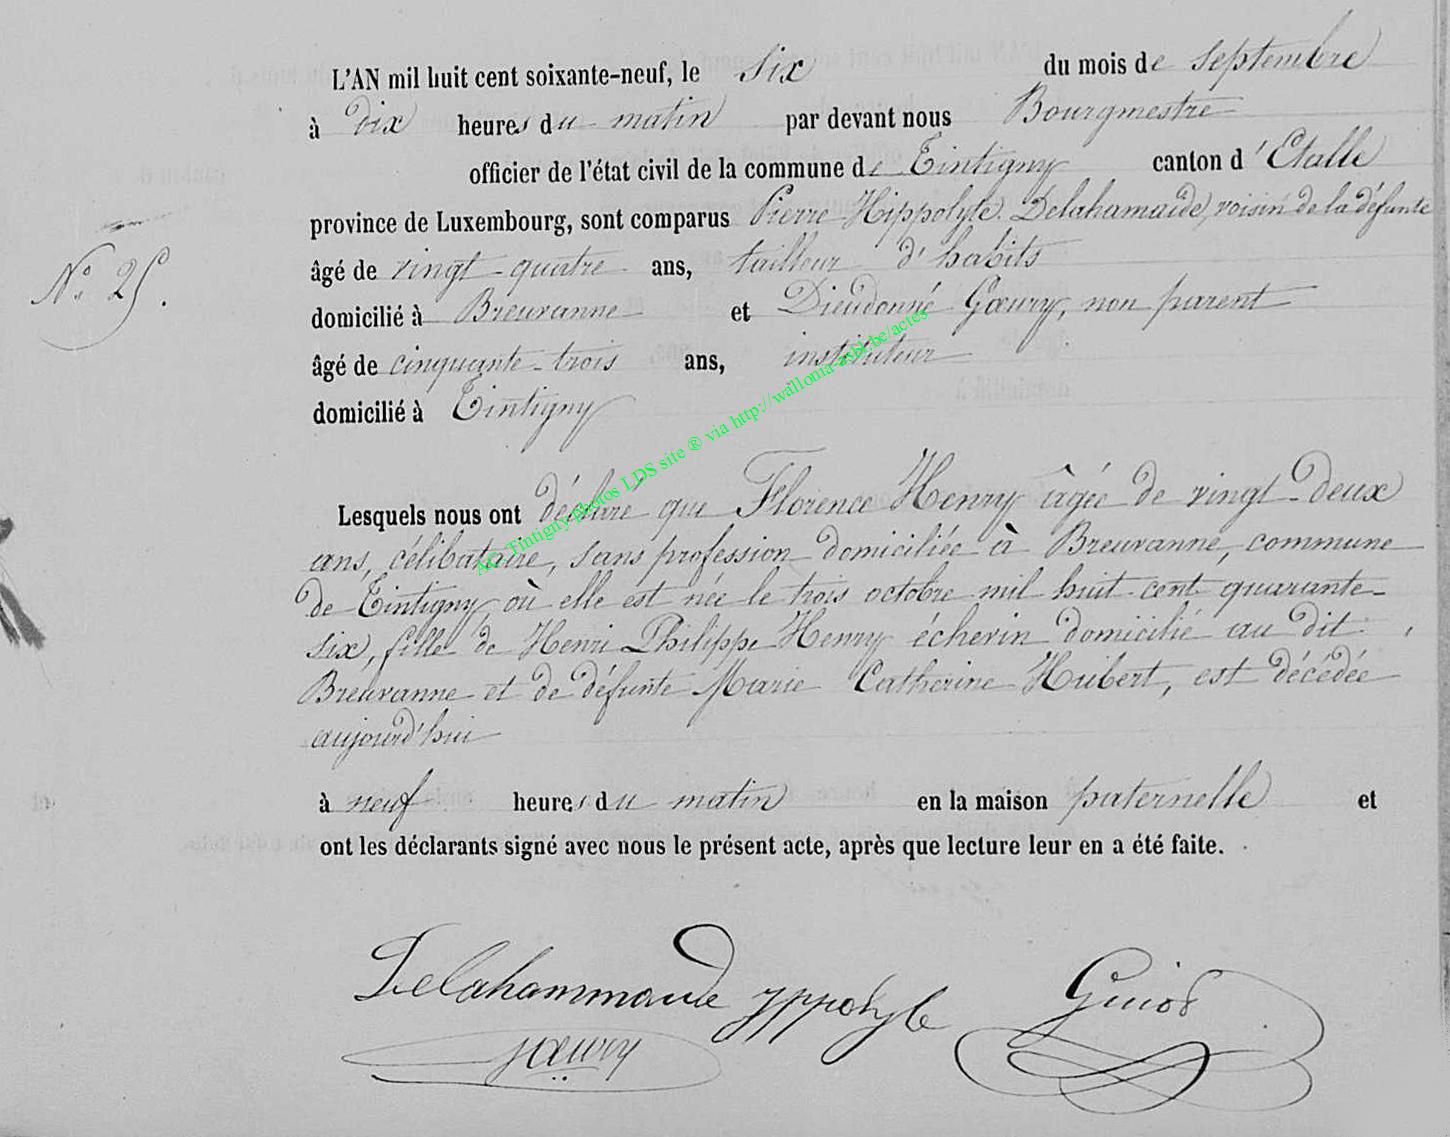 L'AN mil huit cent soixante-neuf, le six du mois de septembre
à dix heures du matin par devant nous Bourgmestre
officier de l'état civil de la commune de Tintigny canton d'Etalle
province de Luxembourg, sont comparus Pierre Hippolyte Delahamaide, voisin de la défunte
âgé de vingt-quatre ans, tailleur d'habits
N° 25.
domicilié à Breuvanne et Dieudonné Gœury, non parent
âgé de cinquante-trois ans, instituteur
domicilié à Tintigny
AC Tintigny photos LDS site ® via http://wallonia-asbl.be/actes
Lesquels nous ont déclaré que Florence Henry âgée de vingt-deux
ans, célibataire, sans profession domiciliée à Breuvanne, commune
de Tintigny où elle est née le trois octobre mil huit cent quarante-
six, fille de Henri Philippe Henry échevin domicilié au dit
Breuvanne et de défunte Marie Catherine Hubert, est décédée
aujourd'hui
à neuf heures du matin en la maison paternelle et
ont les déclarants signé avec nous le présent acte, après que lecture leur en a été faite.
Delahammaide hyppolyte Guiot
Gœury